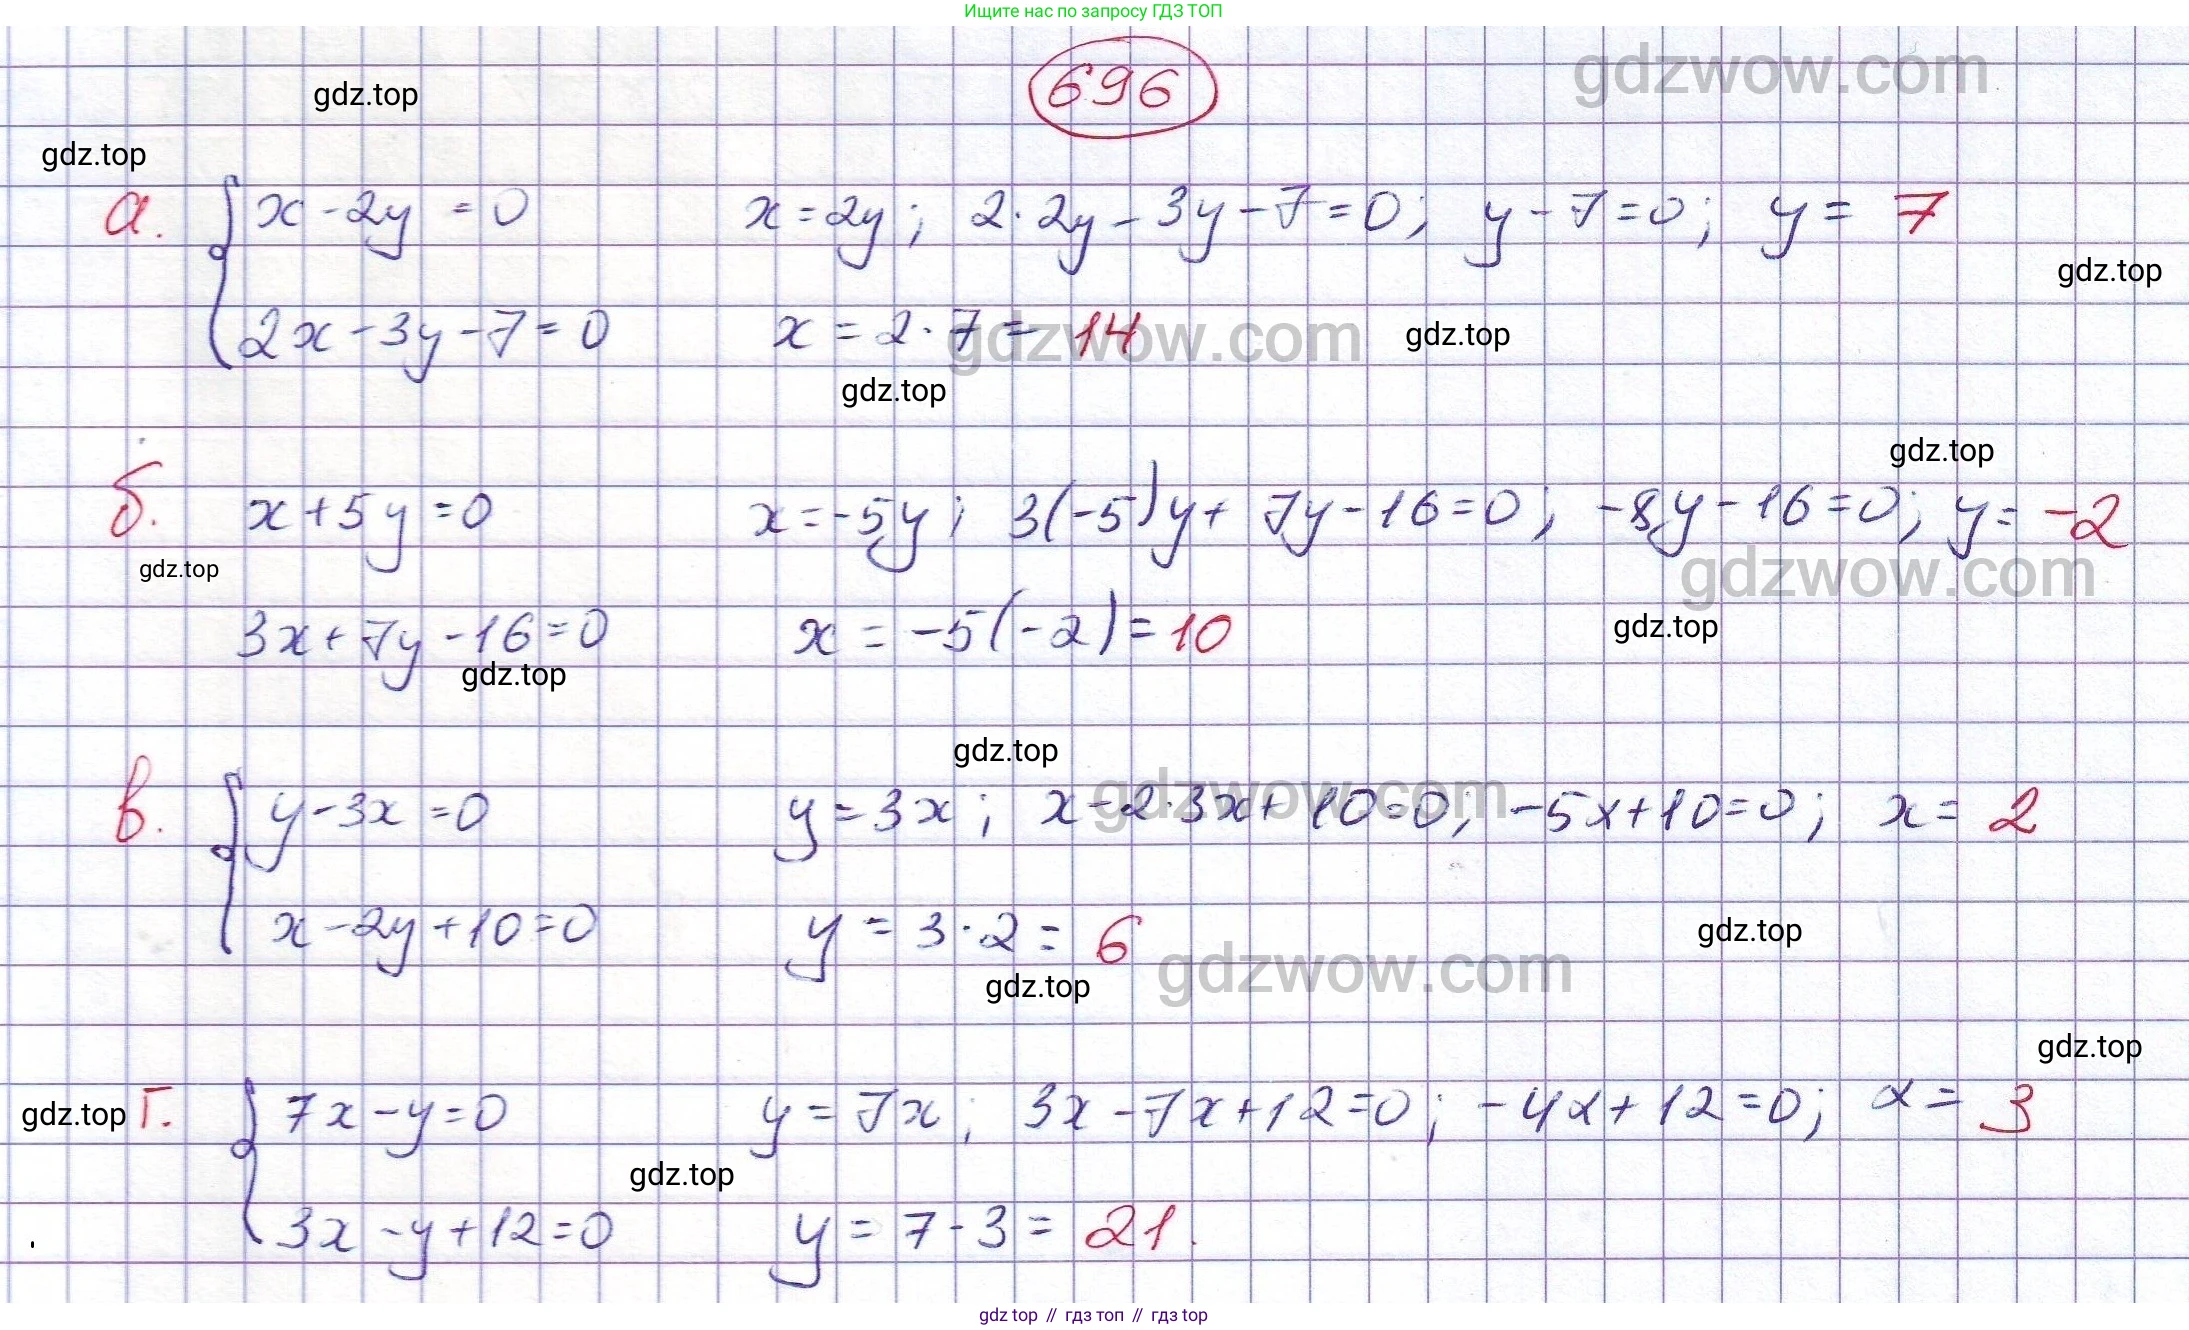 Ищите нас по запросу ГДЗ ТОП
696
gdzwow.com
gdz.top
gdz.top
а. x - 2y = 0 x = 2y; 2·2y - 3y - 7 = 0; y - 7 = 0; y = 7
gdz.top
2x - 3y - 7 = 0 x = 2·7 = 14
gdzwow.com
gdz.top
gdz.top
gdz.top
б. x + 5y = 0 x = -5y; 3(-5)y + 7y - 16 = 0; -8y - 16 = 0; y = -2
gdz.top
gdzwow.com
3x + 7y - 16 = 0 x = -5(-2) = 10
gdz.top
gdz.top
gdz.top
gdzwow.com
в. y - 3x = 0 y = 3x; x - 2·3x + 10 = 0; -5x + 10 = 0; x = 2
x - 2y + 10 = 0 y = 3·2 = 6
gdz.top
gdzwow.com
gdz.top
gdz.top
gdz.top
г. 7x - y = 0 y = 7x; 3x - 7x + 12 = 0; -4x + 12 = 0; x = 3
gdz.top
3x - y + 12 = 0 y = 7·3 = 21.
gdz top // гдз топ // гдз top